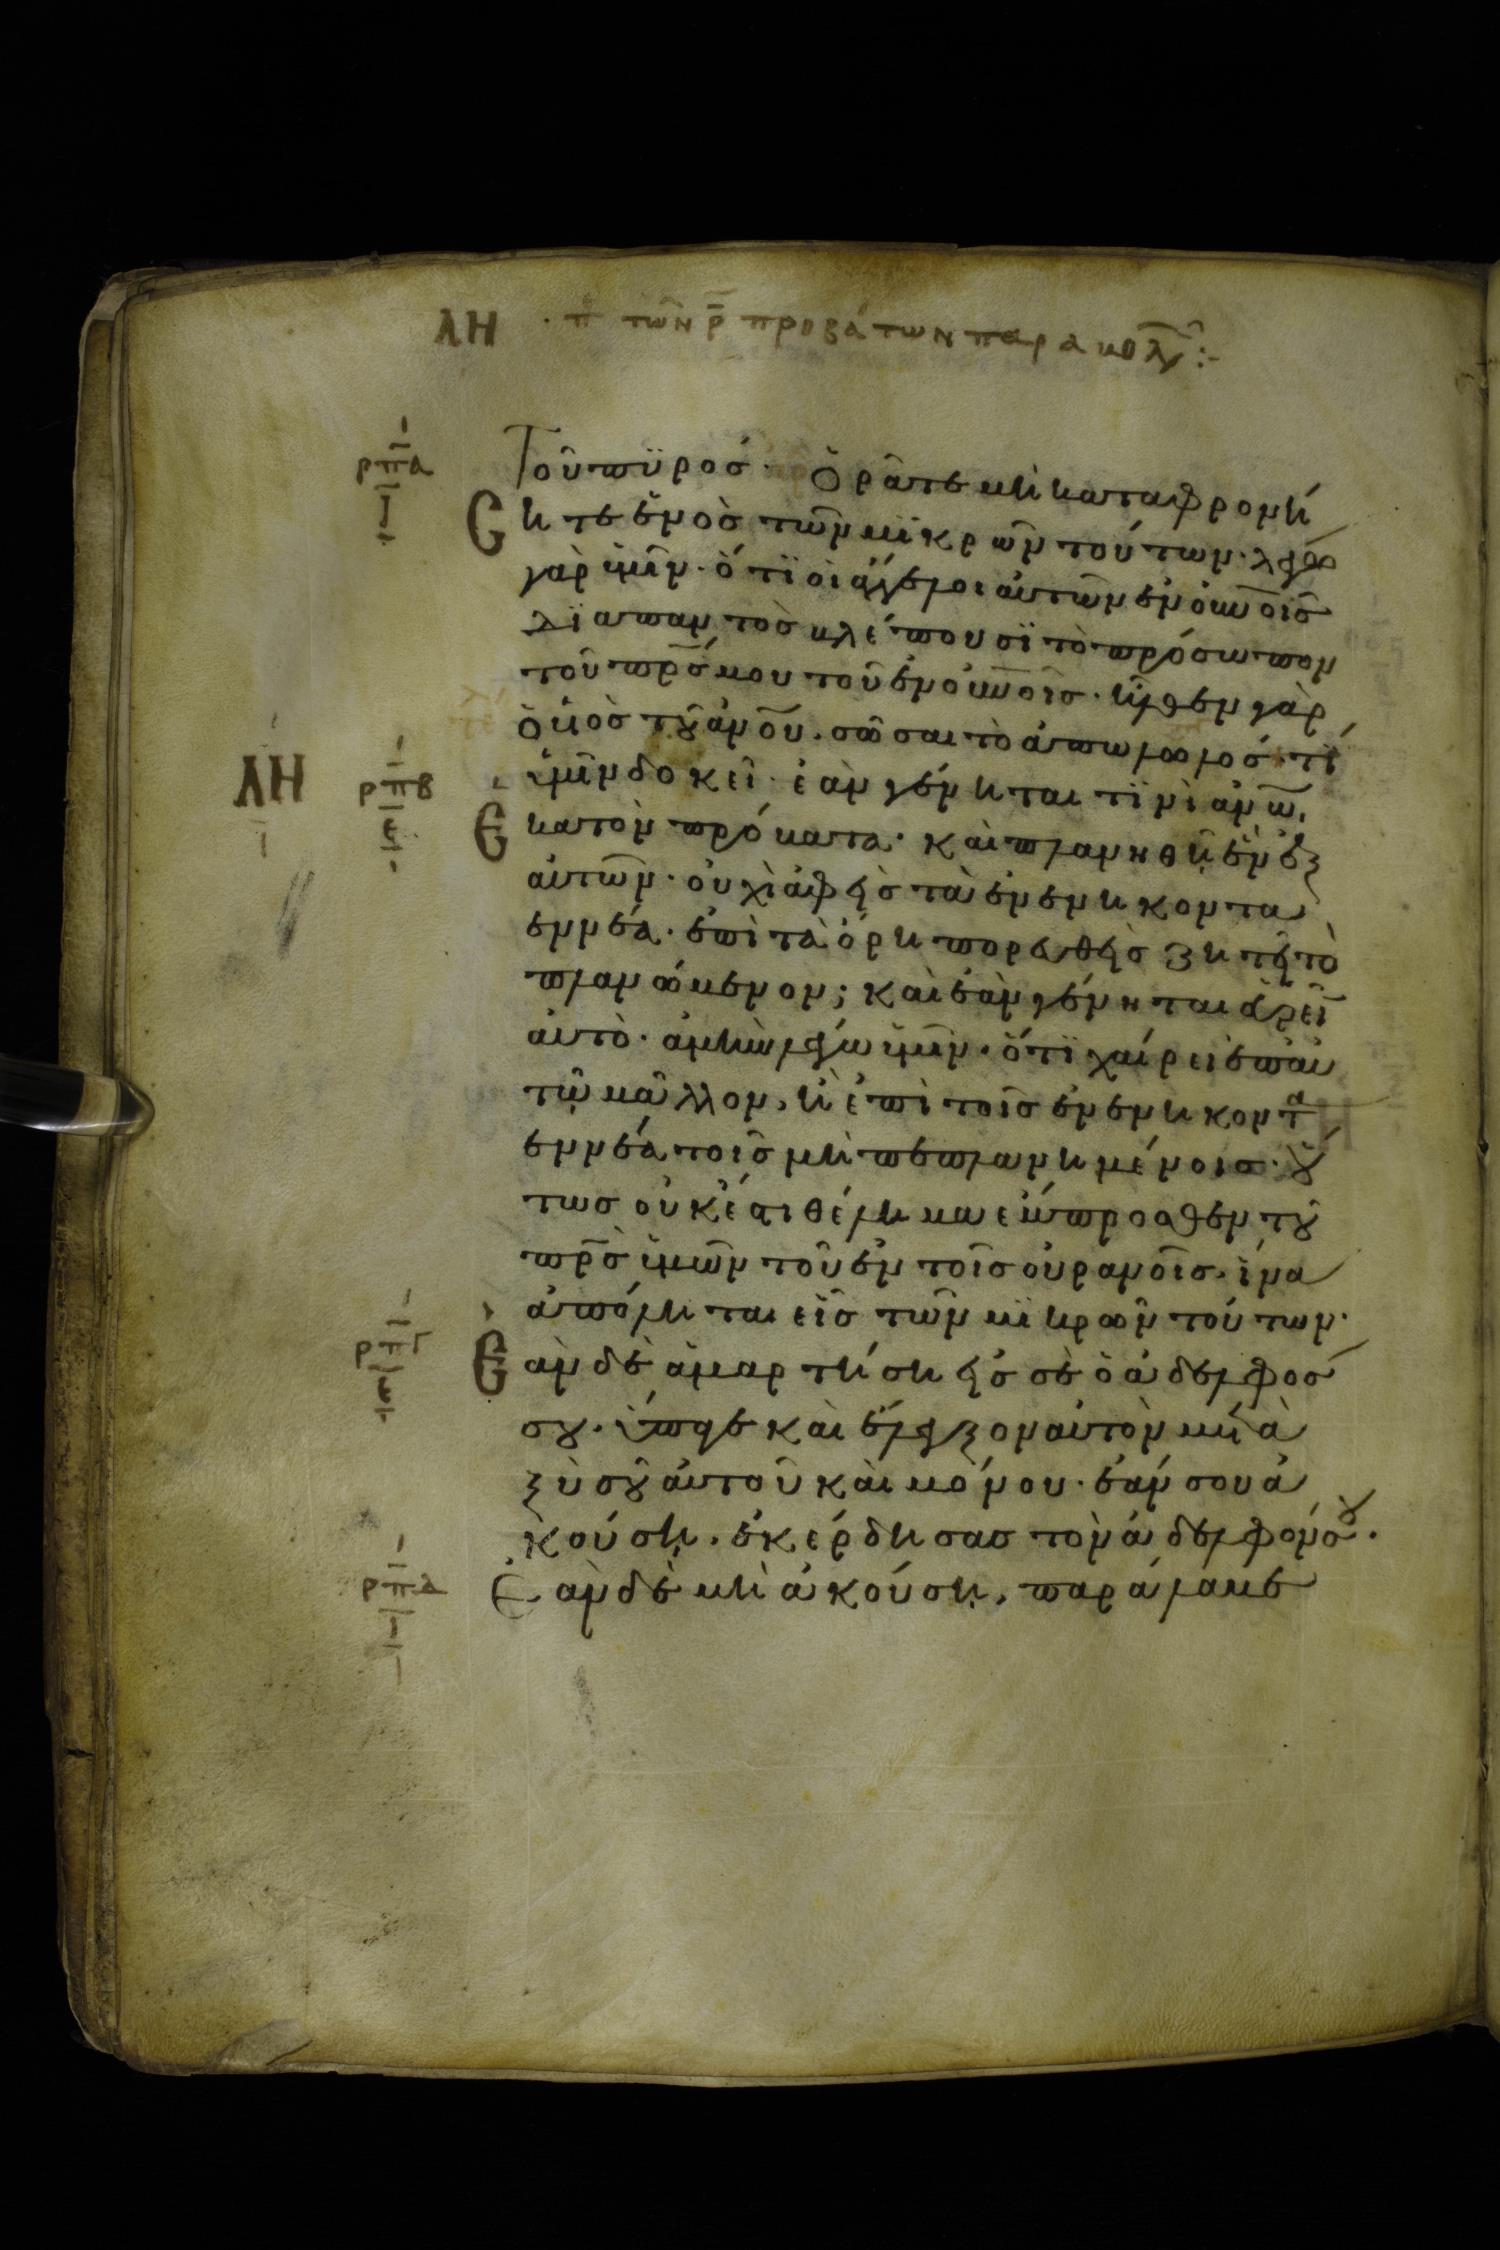 ΛΗ · π τῶν ρ̅ προβάτων παραβολ̑ :-
ρπα
Ι
Τοῦ πϋρός· Ὁρᾶτε μὴ καταφρονή
σητε ἑνὸς τῶν μϊκρῶν τούτων· λέγω
γὰρ ὑμῖν· ὅτϊ οἱ ἄγγελοι αὐτῶν ἐν οὐνοῖς
δϊαπαντὸς βλέπουσϊ τὸ πρόσωπον
τοῦ πρ̅ς μου τοῦ ἐν οὐνοῖς· ἦλθεν γὰρ
ὁ υἱὸς τοῦ ἀνου· σῶσαι τὸ ἀπωλωλός· τί
ΛΗ
ρπβ
ε
ὑμῖν δοκεῖ· ἐὰν γένηται τϊνὶ ἀνω̅,
Εκατὸν πρόβατα· καὶ πλανηθῇ ἓν ἐξ
αὐτῶν· οὐχὶ ἀφεὶς τὰ ἐνενηκοντα
εννέα· ἐπὶ τὰ ὄρη πορευθεὶς ζητεῖ τὸ
πλανώμενον; καὶ ἐὰν γένηται εὑρεῖν
αὐτὸ· ἀμὴν λέγω ὑμῖν· ὅτϊ χαίρει ἐπ' αὐ
τῷ μᾶλλον, ἢ ἐπὶ τοῖς ἐνενηκοντα
εννέα τοῖς μὴ πεπλανημένοις· οὕ
τως οὐκ ἔστι θέλημα ἔμπροσθεν τοῦ
πρ̅ς ὑμῶν τοῦ ἐν τοῖς οὐρανοῖς, ἵνα
ἀπόληται εἷς τῶν μϊκρῶν τούτων·
ρπγ
ε
Εὰν δὲ ἁμαρτήση εἰς σὲ ὁ ἀδελφός
σου· ὕπαγε καὶ ἔλεγξον αὐτὸν με
ξὺ σοῦ αὐτοῦ καὶ μόνου· ἐάν σου ἀ
κούσῃ, ἐκέρδησας τὸν ἀδελφόν σου·
ρπδ
Ι
Εὰν δὲ μὴ ἀκούσῃ, παράλαβε